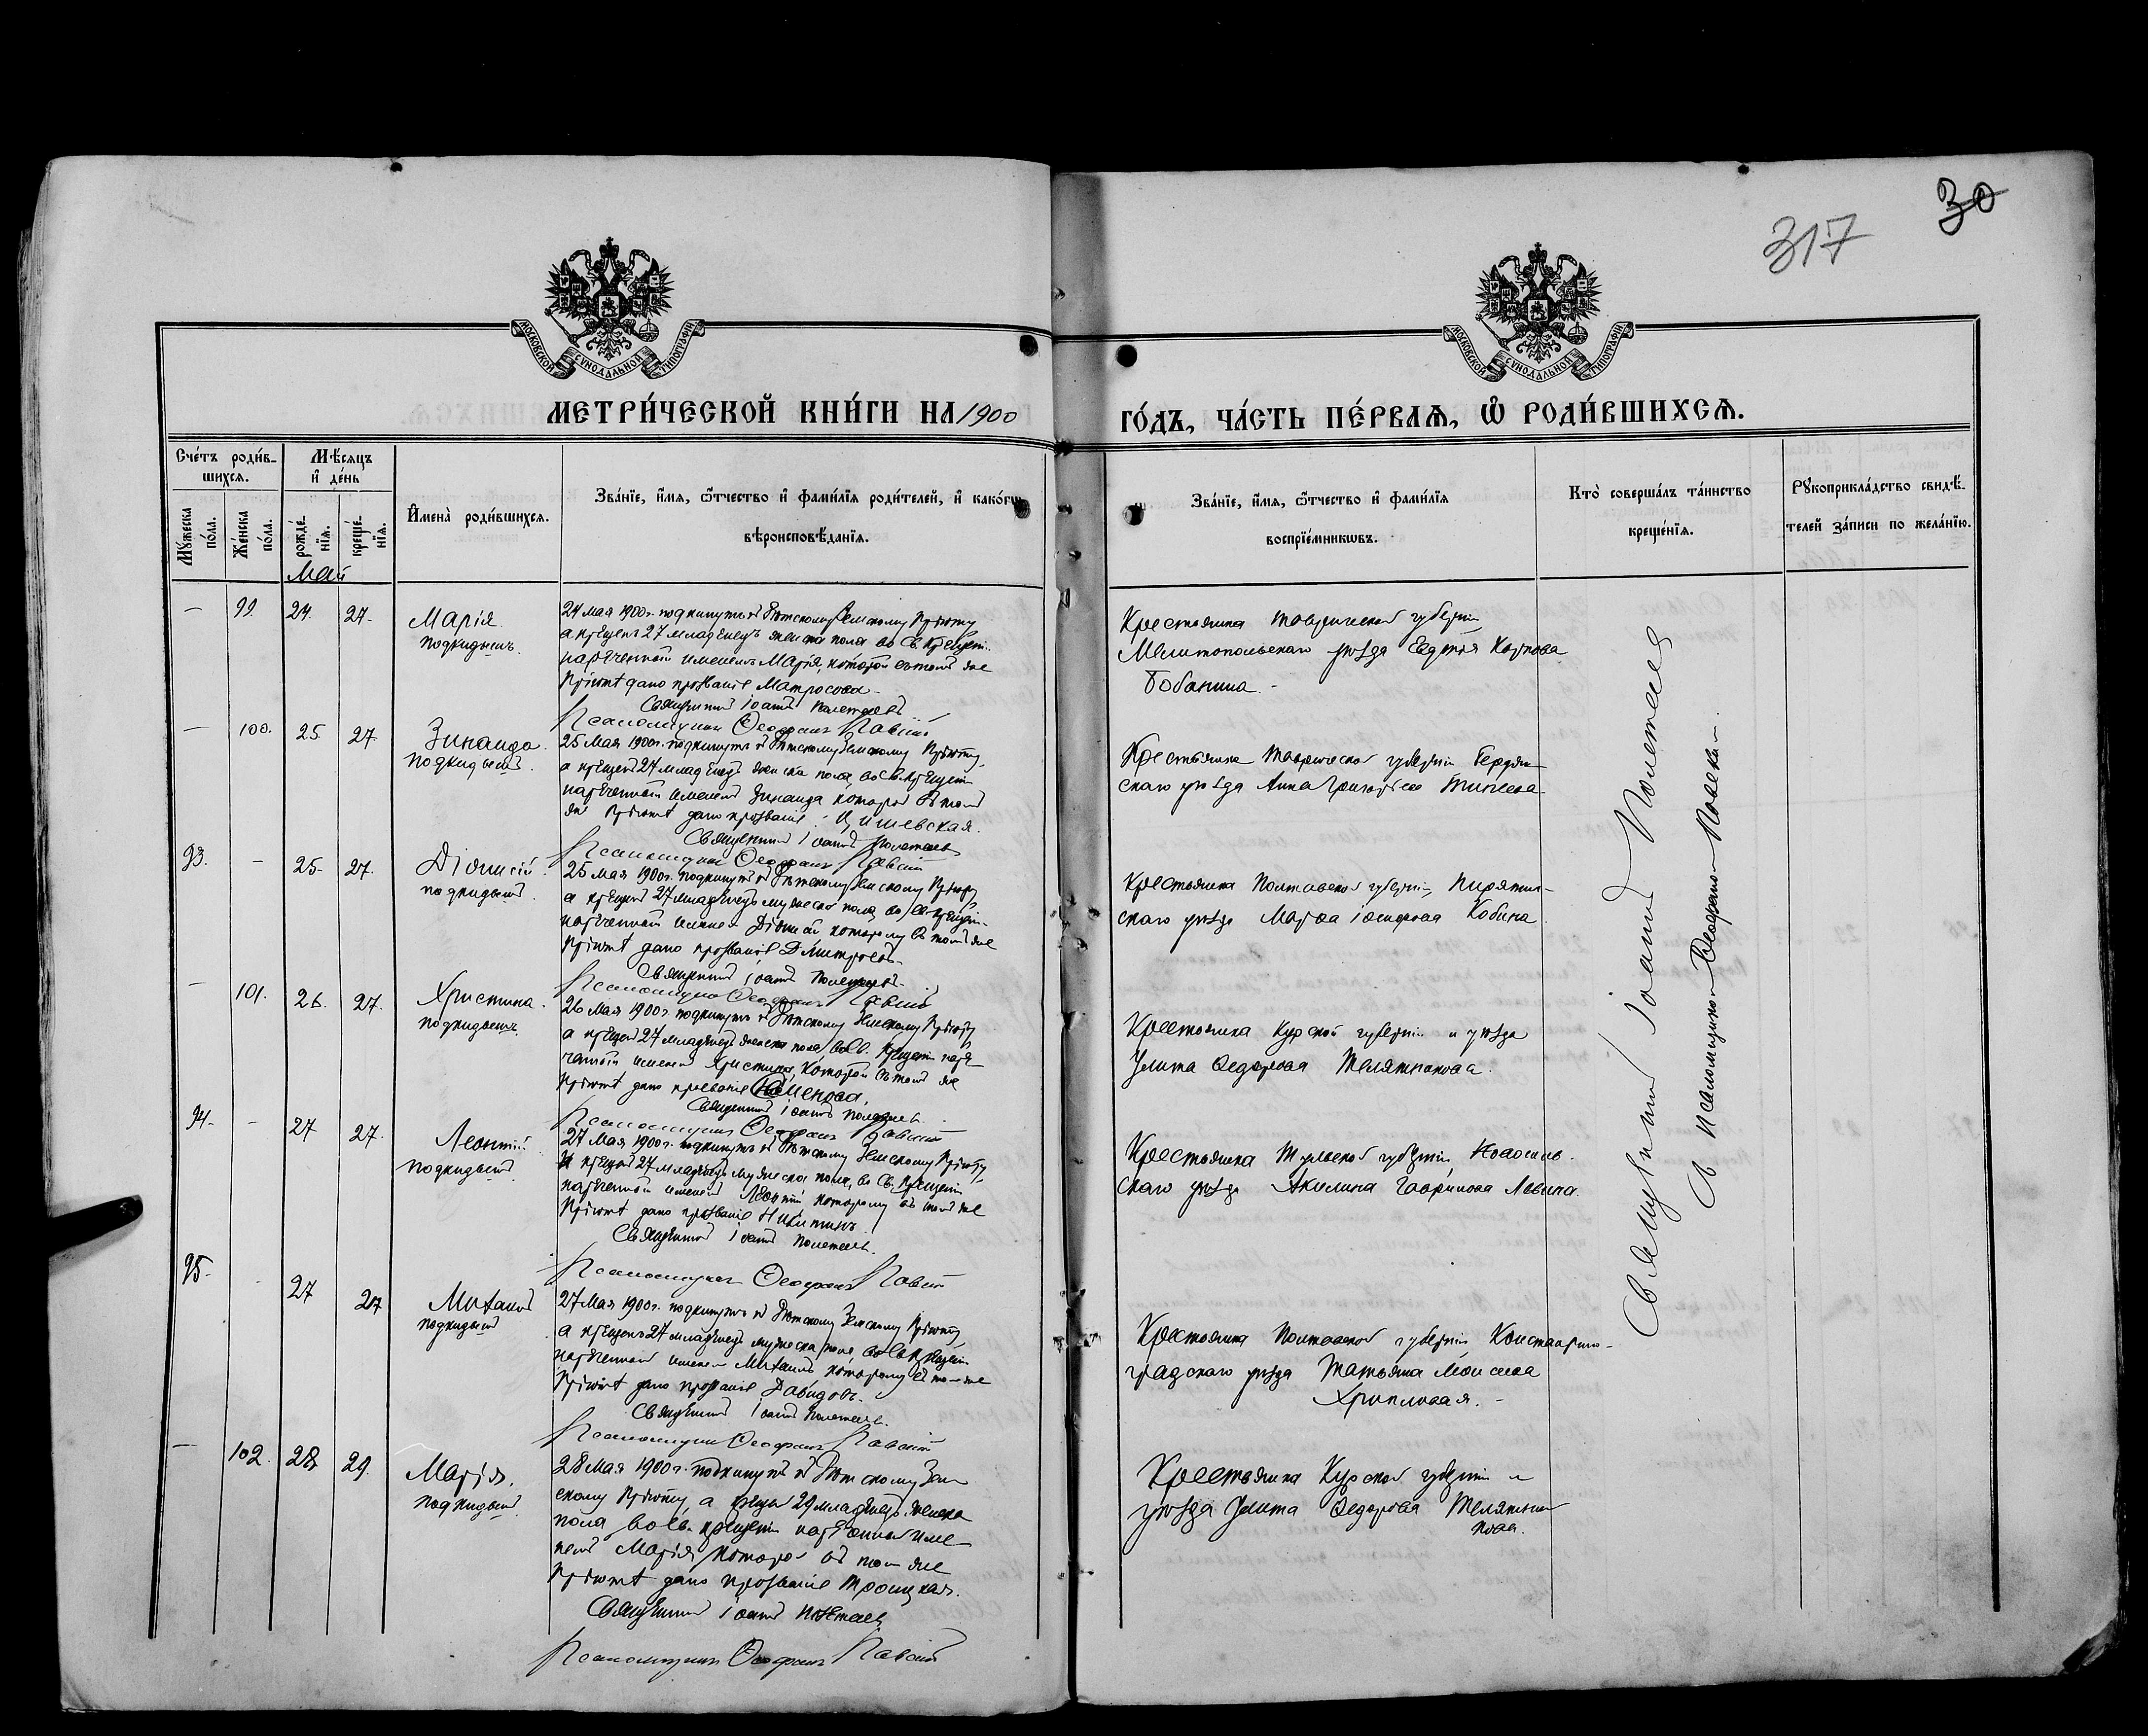 30
317
МОСКОВСКОЙ СѴНОДАЛЬНОЙ ТИПОГРАФІИ
МОСКОВСКОЙ СѴНОДАЛЬНОЙ ТИПОГРАФІИ
МЕТРИ́ЧЕСКОЙ КНИ́ГИ НА 1900
ГО́ДЪ, ЧА́СТЬ ПЕ́РВАЯ, Ѡ҆ РОДИ́ВШИХСЯ.
Сче́тъ роди́в-
шихся.
Мꙋ́жеска по́ла.
Же́нска по́ла.
Мѣ́сяцъ
и҆ де́нь
рожде́-нїя.
креще́-нїя.
И҆мена̀ роди́вшихся.
Зва́нїе, и҆́мя, ѻ҆́тчество и҆ фами́лїя роди́телей, и҆ како́гѡ
вѣроисповѣ́данїя.
Зва́нїе, и҆́мя, ѻ҆́тчество и҆ фами́лїя
воспрїе́мникѡвъ.
Кто̀ соверша́лъ та́инство
креще́нїя.
Рꙋкоприкла́дство свидѣ́-
телей за́писи по жела́нїю.
Май
— 99 24. 27.
Марія
подкидышъ.
24 Мая 1900 г. подкинутъ къ Дѣтскому Земскому Пріюту
а крещенъ 27 младенецъ женска пола во Св. Крещеніи
нареченный именемъ Марія, которой въ томъ же
Пріютѣ дано прозваніе Матросова
Священникъ Іоаннъ Полетаевъ
Псаломщикъ Ѳеофанъ
Крестьянка Таврической губерніи
Мелитопольскаго уѣзда Евдокія Карпова
— 100. 25 27.
Зинаида.
подкидышъ.
25 Мая 1900 г. подкинутъ къ Дѣтскому Земскому Пріюту,
а крещенъ 27 младенецъ женска пола, во Св. Крещеніи
нареченный именемъ Зинаида которой въ томъ
же Пріютѣ дано прозваніе
Священникъ Іоаннъ Полетаевъ
Псаломщикъ Ѳеофанъ
Крестьянка Таврической губерніи Бердян-
скаго уѣзда Анна Григорьева
93. — 25 27.
Діонисій.
подкидышъ.
25 Мая 1900 г. подкинутъ къ Дѣтскому Земскому Пріюту
а крещенъ 27 младенецъ мужеска пола, во Св. Крещеніи
нареченный именемъ Діонисій которому въ томъ же
Пріютѣ дано прозваніе Димитровъ.
Священникъ Іоаннъ Полетаевъ.
Псаломщикъ Ѳеофанъ
Крестьянка Полтавской губерніи, Пирятин-
скаго уѣзда Марѳа Кобина
— 101. 26. 27.
Христина.
подкидышъ
26 Мая 1900 г. подкинутъ къ Дѣтскому Земскому Пріюту
а крещенъ 27 младенецъ женска пола, во Св. Крещеніи наре-
ченный именемъ Христина, которой въ томъ же
Пріютѣ дано прозваніе
Священникъ Іоаннъ Полетаевъ.
Псаломщикъ Ѳеофанъ
Крестьянка Курской губерніи и уѣзда
Улита Ѳедорова Телятникова.
94. — 27 27.
Леонтій.
подкидышъ.
27 Мая 1900 г. подкинутъ къ Дѣтскому Земскому Пріюту,
а крещенъ 27 младенецъ мужеска пола, во Св. Крещеніи
нареченный именемъ Леонтій которому въ томъ же
Пріютѣ дано прозваніе Никитинъ.
Священникъ Іоаннъ Полетаевъ.
Псаломщикъ Ѳеофанъ
Крестьянка Тульской губерніи, Новосиль-
скаго уѣзда Акилина Гаврилова Львина.
95. 27 27
Михаилъ
подкидышъ
27 Мая 1900 г. подкинутъ къ Дѣтскому Земскому Пріюту,
а крещенъ 27 младенецъ мужеска пола во Св. Крещеніи
нареченный именемъ Михаилъ, которому въ томъ же
Пріютѣ дано прозваніе Давидовъ.
Священникъ Іоаннъ Полетаевъ.
Псаломщикъ Ѳеофанъ
Крестьянка Полтавской губерніи Константино-
градскаго уѣзда Татьяна Моисеева
Хриплова я.
— 102. 28 29.
Марія.
подкидышъ.
28 Мая 1900 г. подкинутъ къ Дѣтскому Зем-
скому Пріюту, а крещенъ 29 младенецъ женска
пола, во Св. Крещеніи нареченный име-
немъ Марія, которой въ томъ же
Пріютѣ дано прозваніе Троицкая.
Священникъ Іоаннъ Полетаевъ
Псаломщикъ Ѳеофанъ
Крестьянка Курской губерніи и
уѣзда Улита Ѳедорова Телятни-
кова.
Священникъ Іоаннъ Полетаевъ
Псаломщикъ Ѳеофанъ